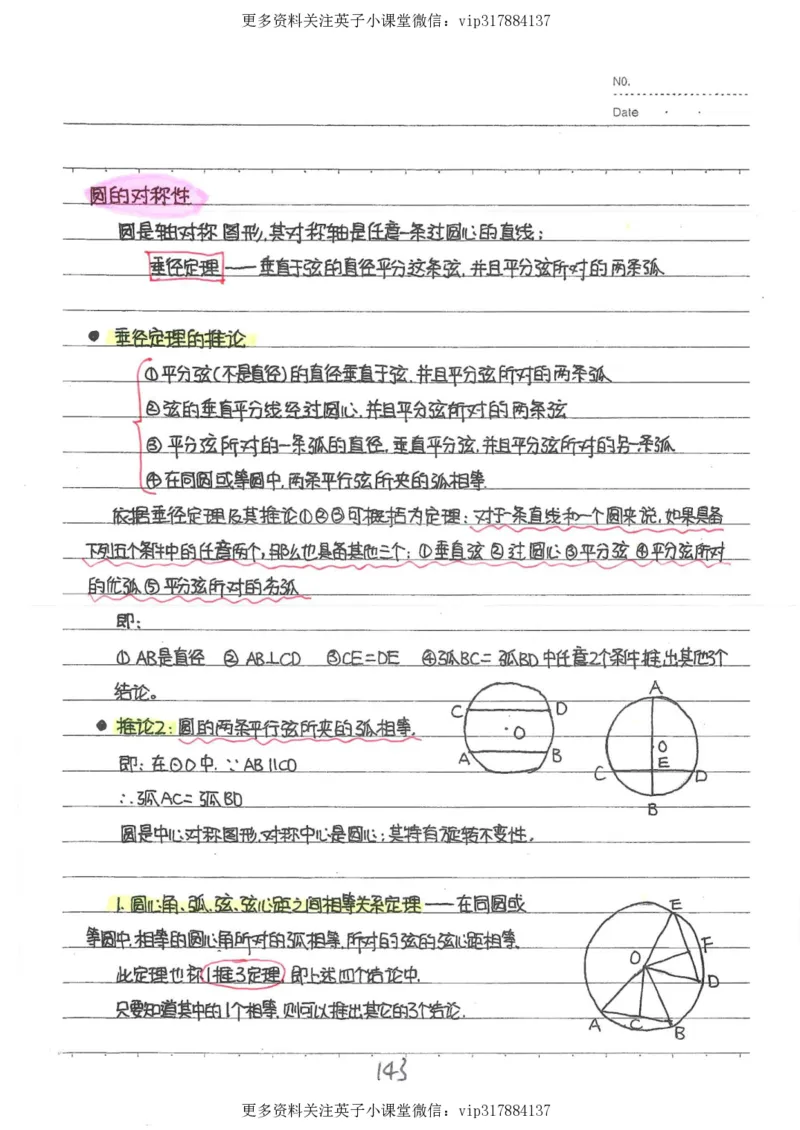 更多资料关注英子小课堂微信：vip317884137
NO.
Date
圆的对称性
圆是轴对称图形，其对称轴是任意一条过圆心的直线；
垂径定理——垂直于弦的直径平分这条弦，并且平分弦所对的两条弧
● 垂径定理的推论
①平分弦(不是直径)的直径垂直于弦，并且平分弦所对的两条弧
②弦的垂直平分线经过圆心，并且平分弦所对的两条弦
③平分弦所对的一条弧的直径，垂直平分弦，并且平分弦所对的另一条弧
④在同圆或等圆中，两条平行弦所夹的弧相等
依据垂径定理及其推论①②③可概括为定理：对于一条直线和一个圆来说，如果具备
下列五个条件中的任意两个，那么也具备其他三个：①垂直弦 ②过圆心 ③平分弦 ④平分弦所对
的优弧 ⑤平分弦所对的劣弧
即：
①AB是直径 ②AB⊥CD ③CE=DE ④弧BC=弧BD 中任意2个条件推出其他3个
结论。
● 推论2：圆的两条平行弦所夹的弧相等.
即：在⊙O中，∵AB∥CD
∴弧AC=弧BD
C D
O
A B
A
O
E
C D
B
圆是中心对称图形，对称中心是圆心；其特有旋转不变性.
1. 圆心角、弧、弦、弦心距之间相等关系定理——在同圆或
等圆中，相等的圆心角所对的弧相等，所对的弦的弦心距相等
此定理也称1推3定理，即上述四个结论中，
只要知道其中的1个相等，则可以推出其它的3个结论.
E
F
O
D
A C B
143
更多资料关注英子小课堂微信：vip317884137